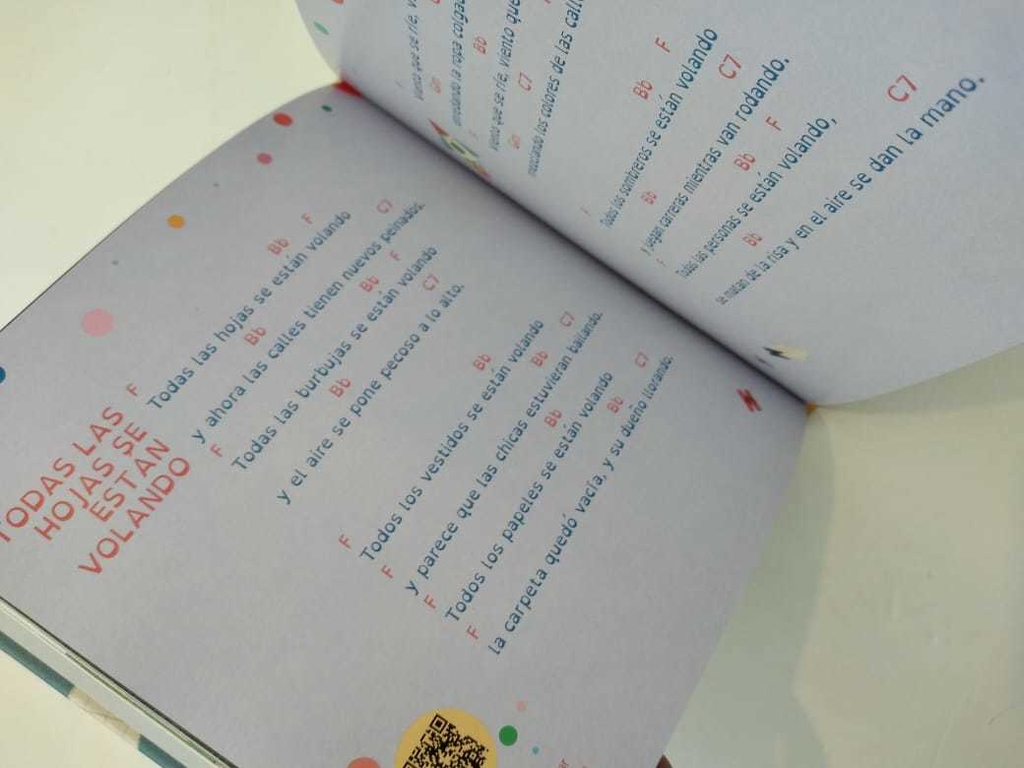 TODAS LAS
HOJAS SE
ESTÁN
VOLANDO
F Bb F
Todas las hojas se están volando
Bb C7
y ahora las calles tienen nuevos peinados.
F Bb F
Todas las burbujas se están volando
Bb C7
y el aire se pone pecoso a lo alto.
F Bb
Todos los vestidos se están volando
F Bb C7
y parece que las chicas estuvieran bailando.
F Bb
Todos los papeles se están volando
F Bb C7
la carpeta quedó vacía, y su dueño llorando.
viento que se ríe,
Bb
la ropa
Bb
viento que se ríe, viento que
Gm C7
los colores de las
F Bb F
Todos los sombreros se están volando
Bb C7
y juegan carreras mientras van rodando.
F Bb F
Todas las personas se están volando,
Bb C7
se matan de la risa y en el aire se dan la mano.